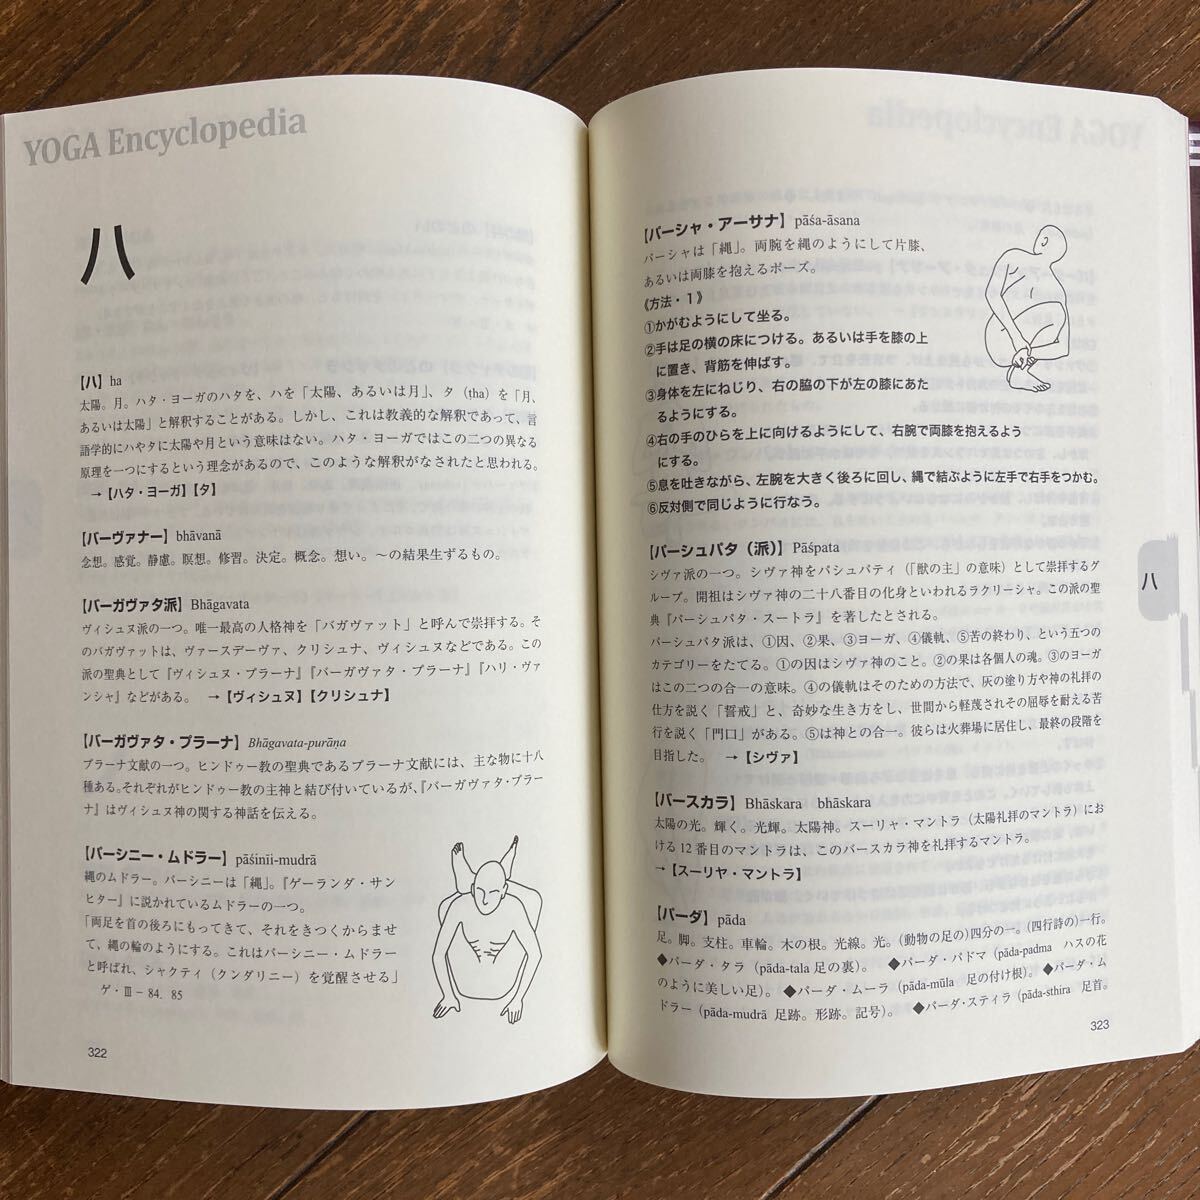 YOGA Encyclopedia
ハ
【ハ】ha
太陽。月。ハタ・ヨーガのハタを、ハを「太陽、あるいは月」、タ（tha）を「月、
あるいは太陽」と解釈することがある。しかし、これは教義的な解釈であって、言
語学的にハやタに太陽や月という意味はない。ハタ・ヨーガではこの二つの異なる
原理を一つにするという理念があるので、このような解釈がなされたと思われる。
→【ハタ・ヨーガ】【タ】
【バーヴァナー】bhāvanā
念想。感覚。静慮。瞑想。修習。決定。概念。想い。〜の結果生ずるもの。
【バーガヴァタ派】Bhāgavata
ヴィシュヌ派の一つ。唯一最高の人格神を「バガヴァット」と呼んで崇拝する。そ
のバガヴァットは、ヴァースデーヴァ、クリシュナ、ヴィシュヌなどである。この
派の聖典として『ヴィシュヌ・プラーナ』『バーガヴァタ・プラーナ』『ハリ・ヴァ
ンシャ』などがある。　→【ヴィシュヌ】【クリシュナ】
【バーガヴァタ・プラーナ】Bhāgavata-purāṇa
プラーナ文献の一つ。ヒンドゥー教の聖典であるプラーナ文献には、主な物に十八
種ある。それぞれがヒンドゥー教の主神と結び付いているが、『バーガヴァタ・プラー
ナ』はヴィシュヌ神の関する神話を伝える。
【パーシニー・ムドラー】pāśinīi-mudrā
縄のムドラー。パーシニーは「縄」。『ゲーランダ・サン
ヒター』に説かれているムドラーの一つ。
「両足を首の後ろにもってきて、それをきつくからませ
て、縄の輪のようにする。これはパーシニー・ムドラー
と呼ばれ、シャクティ（クンダリニー）を覚醒させる」
ゲ・Ⅲ－84．85
322
【パーシャ・アーサナ】pāśa-āsana
パーシャは「縄」。両腕を縄のようにして片膝、
あるいは両膝を抱えるポーズ。
《方法・1》
①かがむようにして坐る。
②手は足の横の床につける。あるいは手を膝の上
に置き、背筋を伸ばす。
③身体を左にねじり、右の脇の下が左の膝にあた
るようにする。
④右の手のひらを上に向けるようにして、右腕で両膝を抱えるよう
にする。
⑤息を吐きながら、左腕を大きく後ろに回し、縄で結ぶように左手で右手をつかむ。
⑥反対側で同じように行なう。
【パーシュパタ（派）】Pāśpata
シヴァ派の一つ。シヴァ神をパシュパティ（「獣の主」の意味）として崇拝するグ
ループ。開祖はシヴァ神の二十八番目の化身といわれるラクリーシャ。この派の聖
典『パーシュパタ・スートラ』を著したとされる。
パーシュパタ派は、①因、②果、③ヨーガ、④儀軌、⑤苦の終わり、という五つの
カテゴリーをたてる。①の因はシヴァ神のこと。②の果は各個人の魂。③のヨーガ
はこの二つの合一の意味。④の儀軌はそのための方法で、灰の塗り方や神の礼拝の
仕方を説く「誓戒」と、奇妙な生き方をし、世間から軽蔑されその屈辱を耐える苦
行を説く「門口」がある。⑤は神との合一。彼らは火葬場に居住し、最終の段階を
目指した。　→【シヴァ】
【バースカラ】Bhāskara　bhāskara
太陽の光。輝く。光輝。太陽神。スーリャ・マントラ（太陽礼拝のマントラ）にお
ける12番目のマントラは、このバースカラ神を礼拝するマントラ。
→【スーリヤ・マントラ】
【パーダ】pāda
足。脚。支柱。車輪。木の根。光線。光。（動物の足の）四分の一。（四行詩の）一行。
◆パーダ・タラ（pāda-tala 足の裏）。　◆パーダ・パドマ（pāda-padma　ハスの花
のように美しい足）。　◆パーダ・ムーラ（pāda-mūla　足の付け根）。◆パーダ・ム
ドラー（pāda-mudrā　足跡。形跡。記号）。　◆パーダ・スティラ（pāda-sthira　足首。
323
ハ